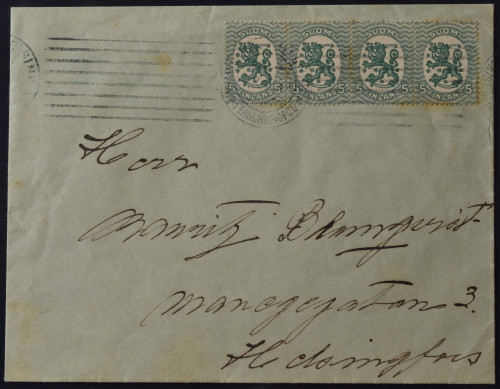 SUOMI SUOMI SUOMI SUOMI
5 FINLAND 5 5 FINLAND 5 5 FINLAND 5 5 FINLAND 5
Herr
Mauritz Blomqvist
Manegegatan 3.
Helsingfors